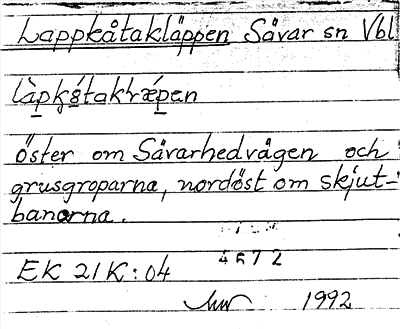 Lappkåtakläppen Sävar sn Vbl
öster om Sävarhedvägen och
grusgroparna, nordöst om skjut-
banorna.
4672
EK 21K:04
1992